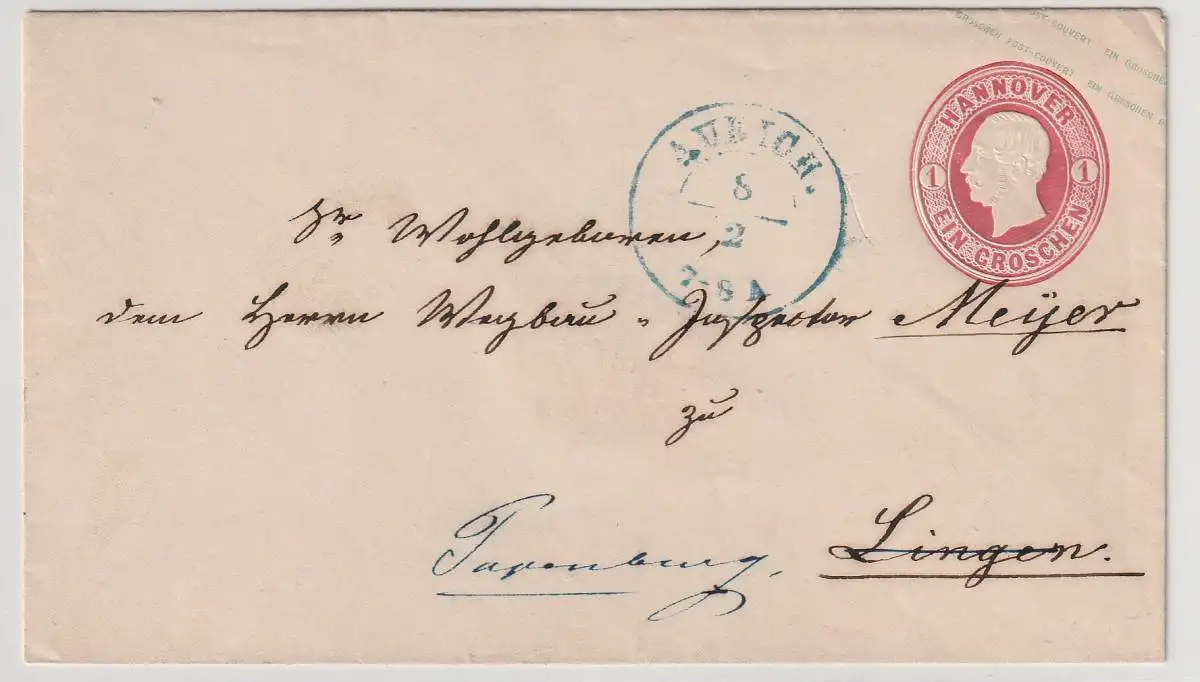 POST-COUVERT EIN GROSCHEN
GROSCHEN POST-COUVERT EIN GROSCHEN P
HANNOVER
1 1
EIN GROSCHEN
AURICH.
8
2
7-8 A
Sr Wohlgeboren,
dem Herrn Wegbau-Inspector Meÿer
zu
Papenburg, Lingen.